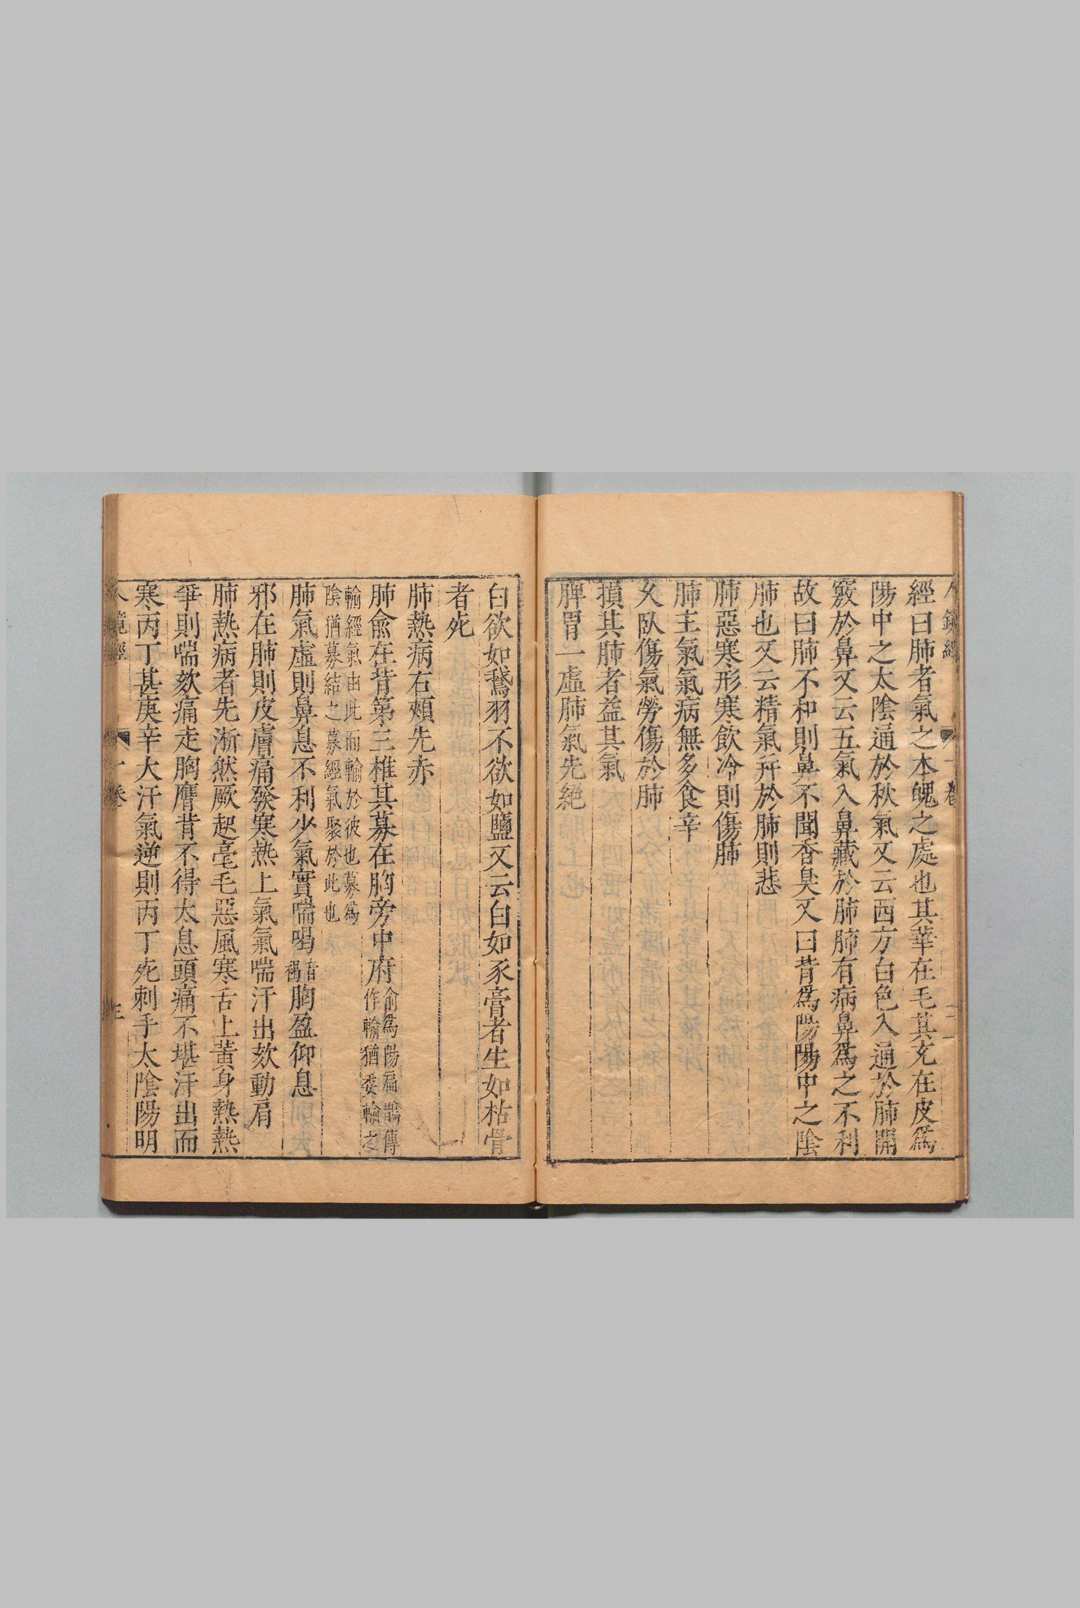 經曰肺者氣之本魄之處也其華在毛其充在皮爲
陽中之太陰通於秋氣又云西方白色入通於肺開
竅於鼻又云五氣入鼻藏於肺肺有病鼻爲之不利
故曰肺不和則鼻不聞香臭又曰背爲陽陽中之陰
肺也又云精氣并於肺則悲
肺惡寒形寒飲冷則傷肺
肺主氣氣病無多食辛
久臥傷氣勞傷於肺
損其肺者益其氣
脾胃一虛肺氣先絕
白欲如鵞羽不欲如鹽又云白如豕膏者生如枯骨
者死
肺熱病右頰先赤
肺俞在背第三椎其募在胸旁中府俞爲陽扁鵲傳
作輸猶委輸之
輸經氣由此而輸於彼也募爲
陰猶募結之募經氣聚於此也
肺氣虛則鼻息不利少氣實喘喝音褐胸盈仰息
邪在肺則皮膚痛發寒熱上氣氣喘汗出欬動肩
肺熱病者先淅然厥起毫毛惡風寒舌上黃身熱熱
爭則喘欬痛走胸膺背不得太息頭痛不堪汗出而
寒丙丁甚庚辛大汗氣逆則丙丁死刺手太陰陽明
人鏡經 一卷 三